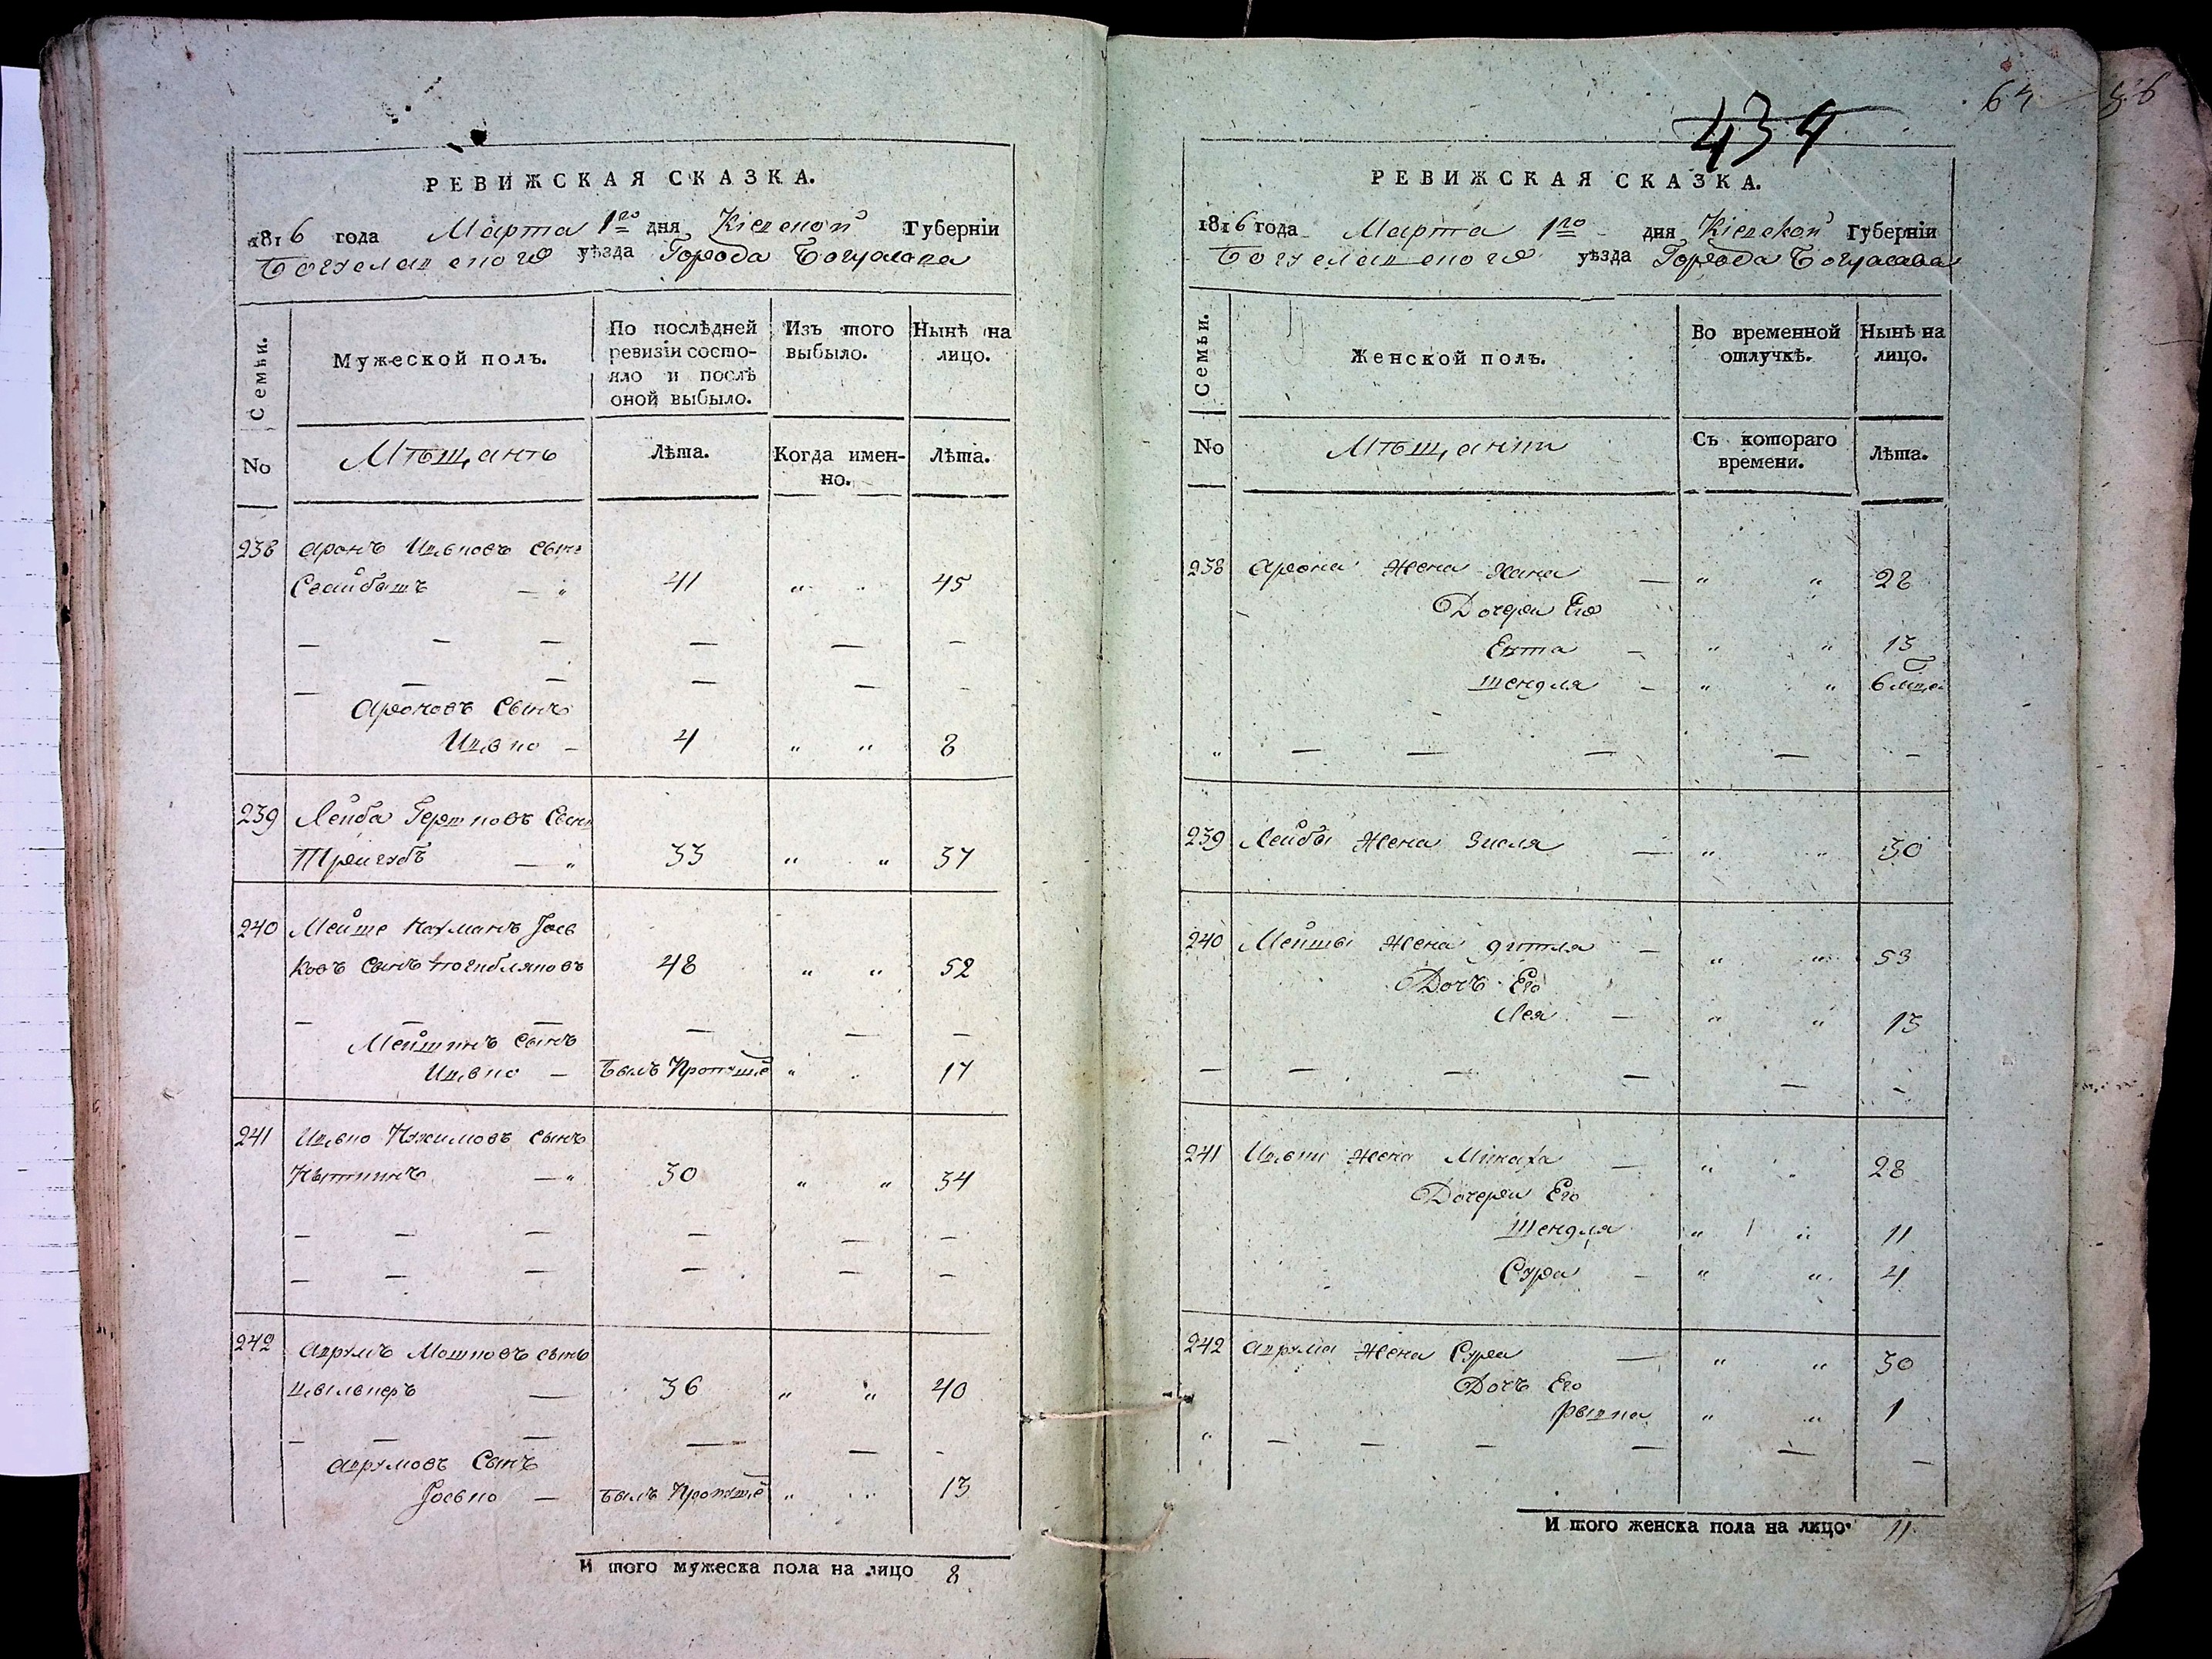 РЕВИЖСКАЯ СКАЗКА.
1816 года Марта 1го дня Кіевской Губерніи
Богуславского уѣзда Города Богуслава
Семьи.
Мужеской полъ.
По послѣдней
ревизіи состо-
яло и послѣ
оной выбыло.
Изъ того
выбыло.
Нынѣ на
лицо.
No
Мѣщанъ
Лѣта.
Когда имен-
но.
Лѣта.
238 Аронъ Ицковъ сынъ
41 " " 45
— — — — — —
— — — — — —
Ароновъ Сынъ
Ицко — 4 " " 8
239 Лейба Гершковъ Сынъ
— " 33 " " 37
240 Мейше Нахманъ Іось
ковъ сынъ 48 " " 52
— — — — — —
Мейшинъ сынъ
Ицко — Былъ Пропуще " " 17
241 Ицко сынъ
— " 30 " " 34
— — — — — —
— — — — — —
242 Аврумъ Мошковъ сынъ
— 36 " " 40
— — — — — —
Аврумовъ Сынъ
Іосько — былъ Пропуще " " 13
И того мужеска пола на лицо 8
64
434
РЕВИЖСКАЯ СКАЗКА.
1816 года Марта 1го дня Кіевской Губерніи
Богуславского уѣзда Города Богуслава
Семьи.
Женской полъ.
Во временной
отлучкѣ.
Нынѣ на
лицо.
No
Мѣщанки
Съ котораго
времени.
Лѣта.
238 Арона Жена Хана — " " 28
Дочери Его
Ента — " " 13
Шендля — " " 6
" — — — — —
239 Лейбы Жена Зисля — " " 30
240 Мейши Жена — " " 53
Дочь Его
Лея — " " 13
— — — — — —
241 Ицки жена — " " 28
Дочери Его
Шендля " " 11
Сура — " " 4
242 Аврума Жена Сура — " " 30
Дочь Его
Рывка " " 1
" — — — — — —
И того женска пола на лицо. 11